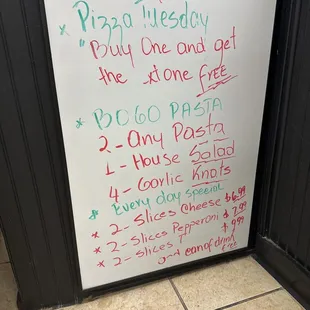 * Pizza Tuesday
"Buy One and get
the xt one FREE
* BOGO PASTA
2 - Any Pasta
1 - House Salad
4 - Garlic Knots
* Every day special
* 2 - Slices Cheese $6.99
* 2 - Slices Pepperoni $7.99
* 2 - Slices $9.99
and can of drink